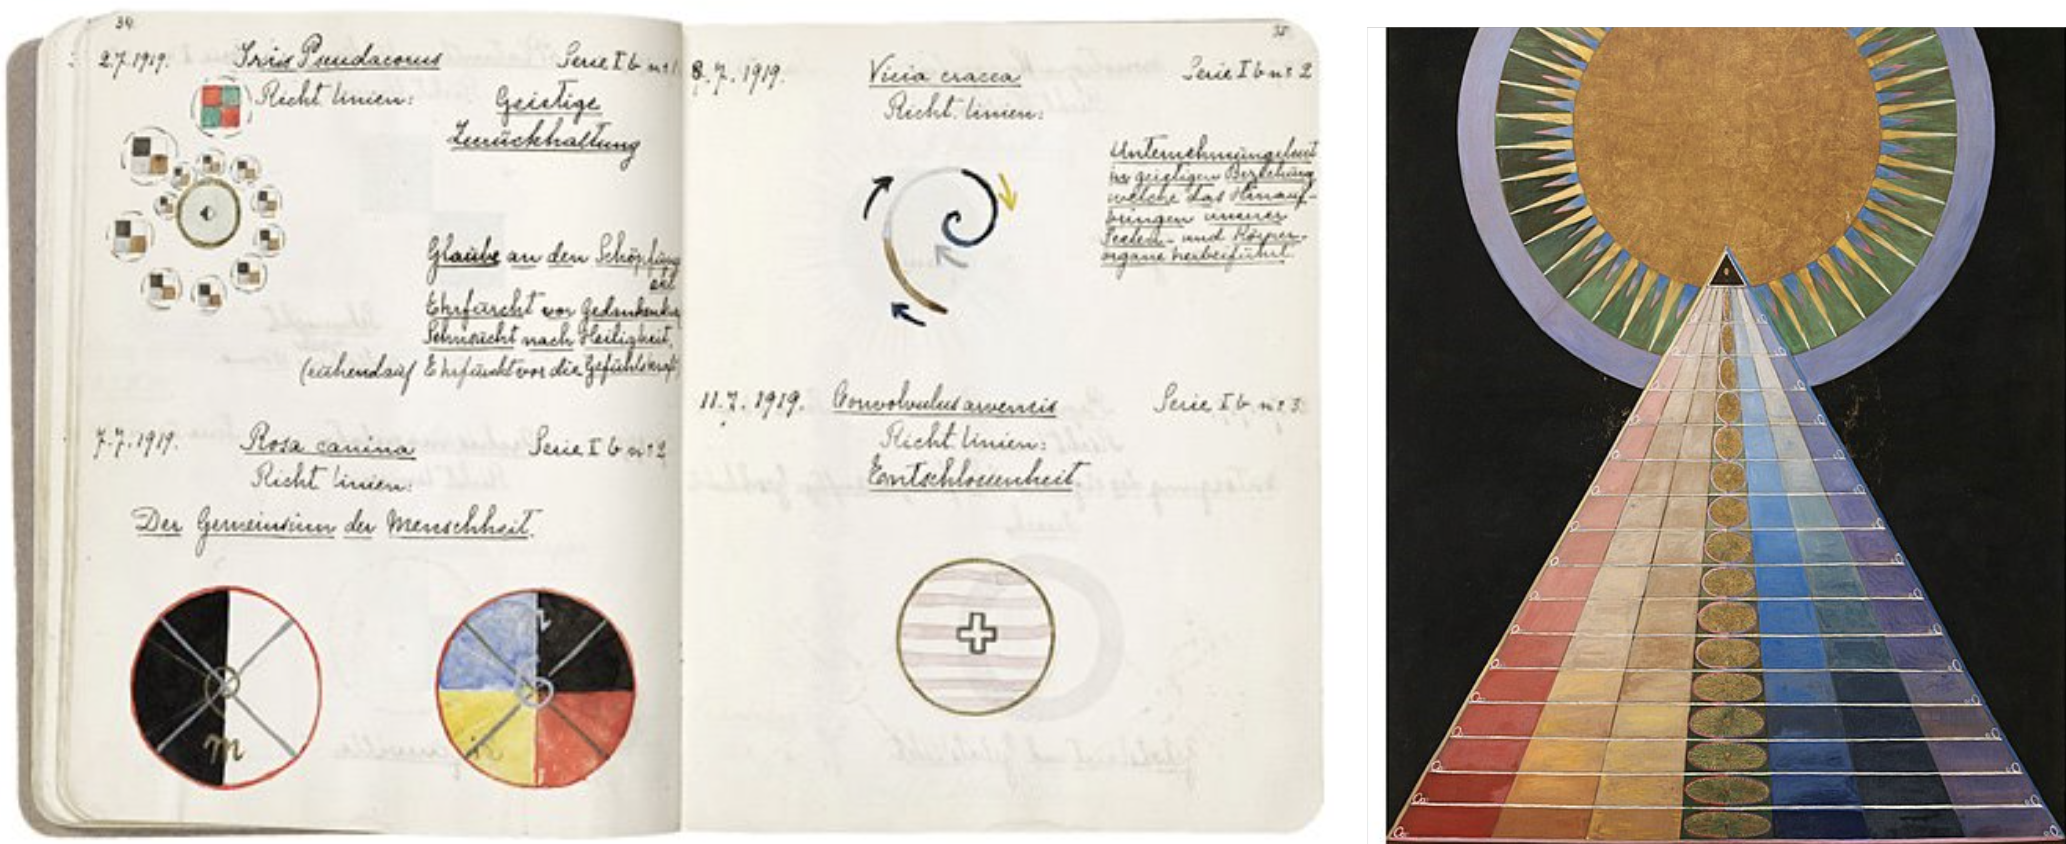 34
2.7.1919. Iris Pseudacorus Serie I b nr 1
Richtlinien: Geistige
Zurückhaltung
Glaube an den Schöpfung
Ehrfurcht vor
Sehnsucht nach Heiligkeit,
(ruhend auf Ehrfurcht vor die Gefühlskraft
7.7.1919. Rosa canina Serie I b nr 2
Richtlinien:
Der Gemeinsinn der Menschheit.
m
35
8.7.1919. Vicia cracca Serie I b nr 2
Richtlinien:
Unternehmungslust
in geistigen Beziehung
welche das Hinauf-
bringen unserer
Seelen- und Körper-
organe herbeiführt.
11.7.1919. Convolvulus arvensis Serie I b nr 3.
Richtlinien:
Entschlossenheit